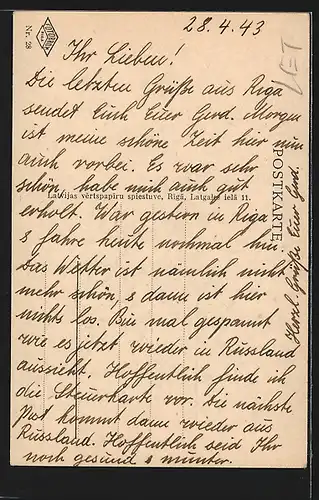 Nr. 28
28.4.43
Ihr Lieben!
Die letzten Grüße aus Riga
sendet Euch Euer Gerd. Morgen
ist meine schöne Zeit hier nun
auch vorbei. Es war sehr
schön, habe mich auch gut
Latvijas vērtspapīru spiestuve, Rīgā, Latgales ielā 11.
erholt. War gestern in Riga
s fahre heute nochmal hin.
Das Wetter ist nämlich nicht
mehr schön, s dann ist hier
nichts los. Bin mal gespannt
wie es jetzt wieder in Russland
aussieht. Hoffentlich finde ich
die Steuerkarte vor. Die nächste
Post kommt dann wieder aus
Russland. Hoffentlich seid Ihr
noch gesund s munter.
POSTKARTE
Herzl. Grüße Euer Gerd.